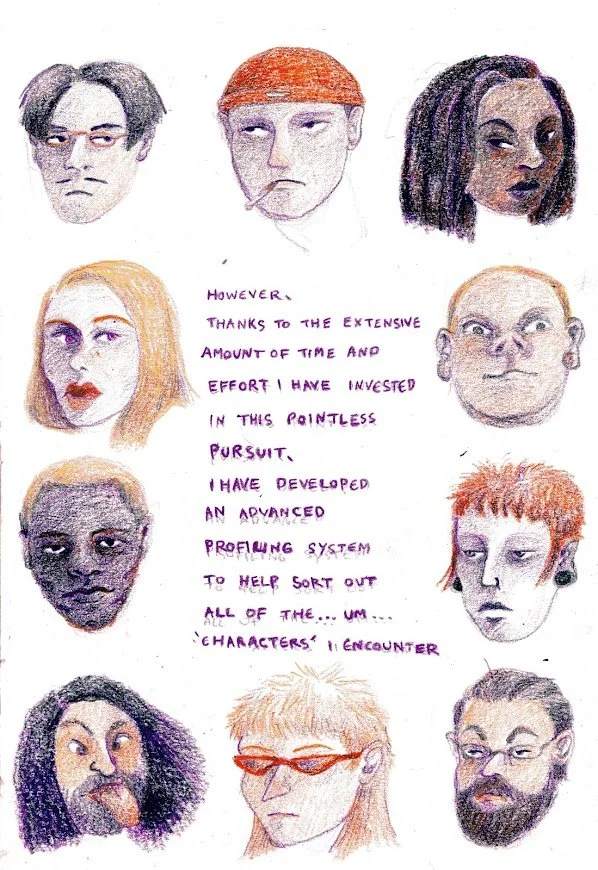 HOWEVER,
THANKS TO THE EXTENSIVE
AMOUNT OF TIME AND
EFFORT I HAVE INVESTED
IN THIS POINTLESS
PURSUIT,
I HAVE DEVELOPED
AN ADVANCED
PROFILING SYSTEM
TO HELP SORT OUT
ALL OF THE... UM...
'CHARACTERS' I ENCOUNTER